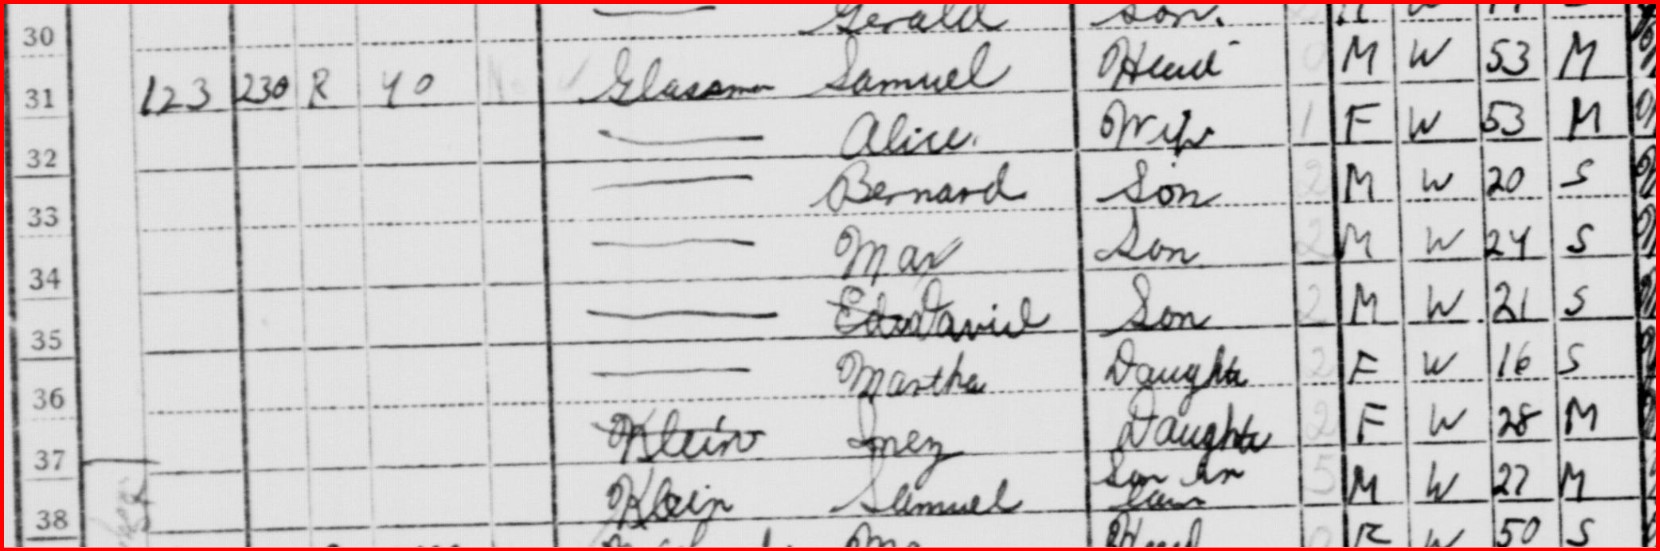 30 Gerald Son.
31 123 230 R 40 Glassman Samuel Head 0 M W 53 M
32 Alice. Wife 1 F W 53 M
33 Bernard Son 2 M W 20 S
34 Max Son 2 M W 24 S
35 David Son 2 M W 21 S
36 Martha Daughter 2 F W 16 S
37 Klein Inez Daughter 2 F W 28 M
38 Klein Samuel Son in law 5 M W 27 M
Head W 50 S